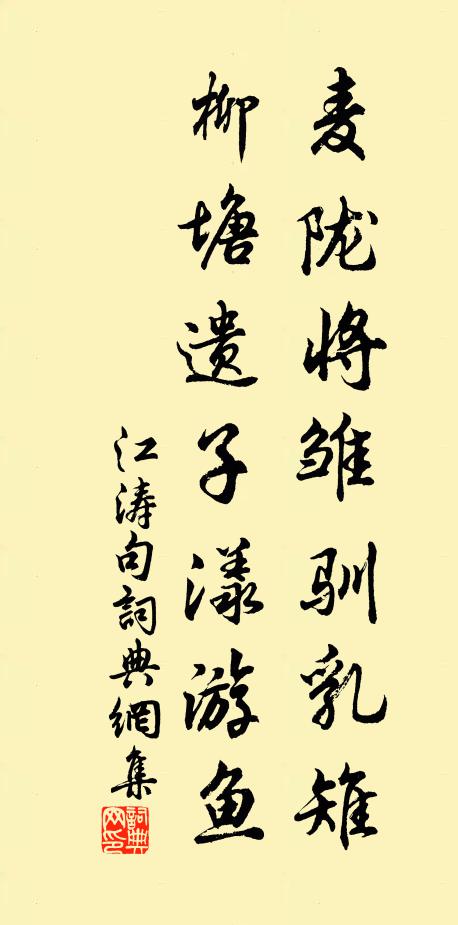 麦陇将雏驯乳雉
柳塘遗子漾游鱼
江涛句詞典網集
詞典网印